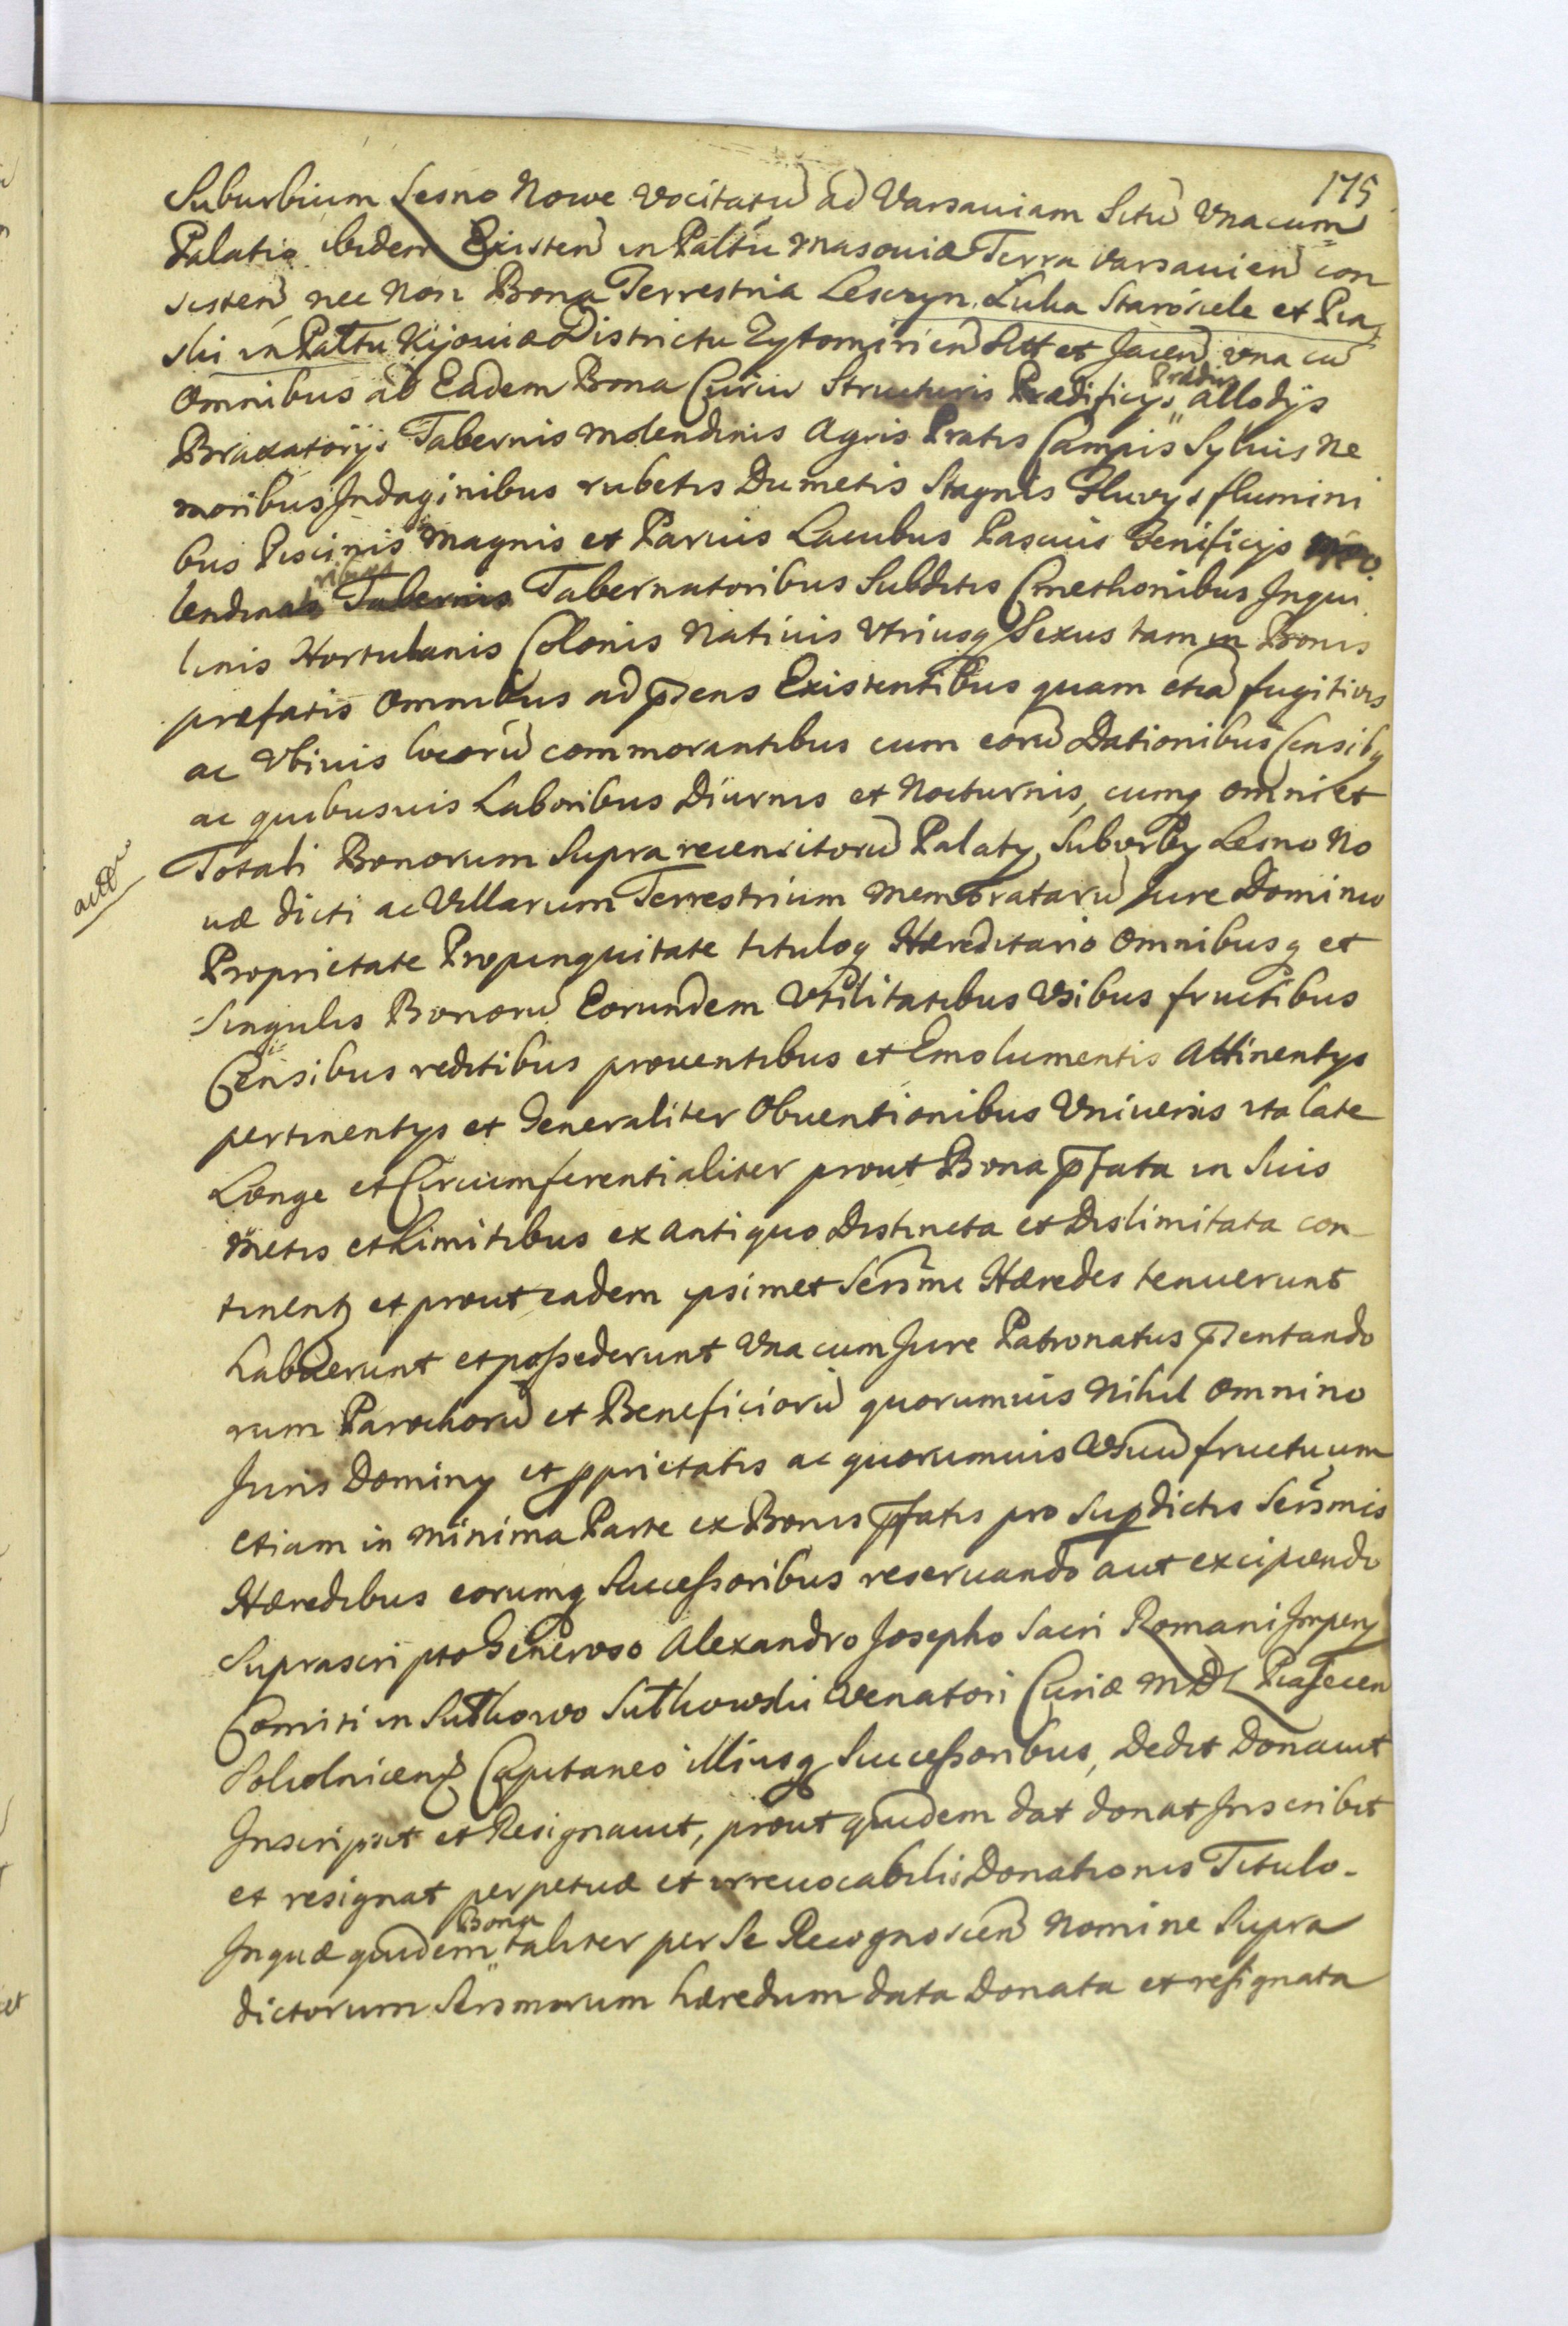 175
Suburbium Lesno Nowe vocitatũ ad Varsauiam Sitũ Vna cum
Palatio ibidem Existen̄ in Pałtu Masouiæ Terra Varsauien̄ con
sisten̄ nec Non Bona Terrestria Lesczyn Łuka Starosiele et Pia
ski in Pałtu Kijouiæ Districtu Zytomirien̄ Sitt et Jacen̄ vna cũ
Omnibus ad Eadem Bona Curiis Structuris Prædificijs Prædijs Allodijs
Braxatorijs Tabernis Molendinis Agris Pratis Campis Syluis Ne
moribus Indaginibus rubetis Dumetis Stagnis Fluvijs flumini
bus Piscinis Magnis et Paruis Lacubus Pascuis Genificijs Mo
lendinatoribus Tabernatoribus Subditis Cmethonibus Inqui
linis Hortulanis Colonis Natiuis Vtriusq Sexus tam in Bonis
præfatis Omnibus ad p̄sens Existentibus quam etiã fugitivis
ac Vbiuis locorũ commorantibus cum eorũ Dationibus Censibq
ac quibusuis Laboribus Diurnis et Nocturnis, cumq omni et
Totali Bonorum Supra recensitorũ Palatij, Suburbij Lesno No
uæ dicti ac Villarum Terrestrium Memoratarũ Jure Dominio
Proprietate Propinquitate tituloq Hæreditario Omnibusq et
Singulis Bonorũ Eorundem Vtilitatibus Vsibus fructibus
Censibus reditibus prouentibus et Emolumentis Attinentijs
pertinentijs et Generaliter Obuentionibus Vniuersis ita late
Longe et Circumferentialiter prout Bona p̄fata in Suis
Metis et Limitibus ex Antiquo Distincta et Dislimitata con
tinentq et prout eadem ipsimet Sers̃mi Hæredes tenuerunt
habuerunt et possederunt Vna cum Jure Patronatus p̄sentando
rum Parochorũ et Beneficiorũ quorumuis Nihil Omnino
Juris Dominij et pprietatis ac quorumuis Vsuũ fructuum
etiam in Minima Parte ex Bonis p̄fatis pro Supdictis Sers̃mis
Hæredibus eorumq Successoribus reseruando aut excipiendo
Suprascripto Generoso Alexandro Josepho Sacri Romani Imperij
Comiti in Sułkowo Sułkowski Venatori Curiæ MDL Piasecen
Sokolnicenq Capitaneo illiusq Successoribus, Dedit Donauit
Inscripsit et Resignauit, prout quidem dat donat Inscribit
et resignat perpetuæ et irreuocabilis Donationis Titulo.
In quæ quidem Bona taliter per Se Recognoscen̄ Nomine Supra
dictorum Sersmorum hæredum data Donata et resignata